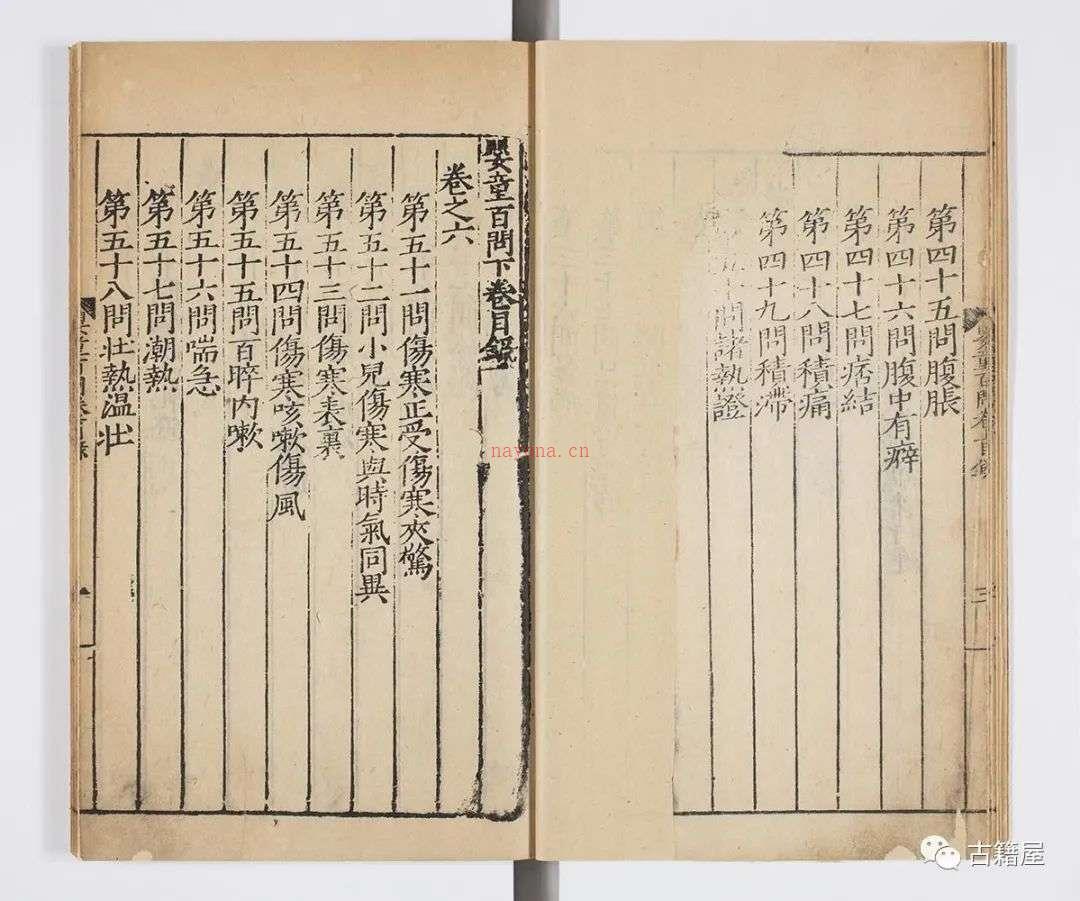 第四十五問腹脹
第四十六問腹中有癖
第四十七問痞結
第四十八問積痛
第四十九問積滯
問諸熱證
三
嬰童百問下卷目録
卷之六
第五十一問傷寒正受傷寒夾驚
第五十二問小兒傷寒與時氣同異
第五十三問傷寒表裏
第五十四問傷寒咳嗽傷風
第五十五問百晬内嗽
第五十六問喘急
第五十七問潮熱
第五十八問壯熱温壯
nayona.cn
古籍屋